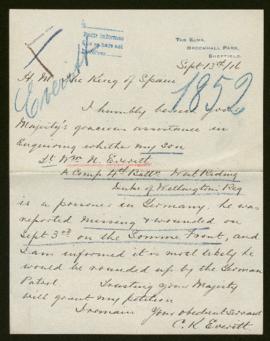 The Elms,
Broomhill Park,
Sheffield.
Sept 13th/16
H. M. The King of Spain
Everitt
1852
I humbly beseech your
Majesty's generous assistance in
Enquiring whether my son
Lt Wm N. Everitt
A Comp 4th Battn West Riding
Duke of Wellington's Reg
is a prisoner in Germany. he was
reported missing & wounded on
Sept 3rd on the Somme Front, and
I am informed it is most likely he
would be rounded up by the German
Patrol Trusting your Majesty
will grant my petition
I remain Your obedient Servant
C. K. Everitt